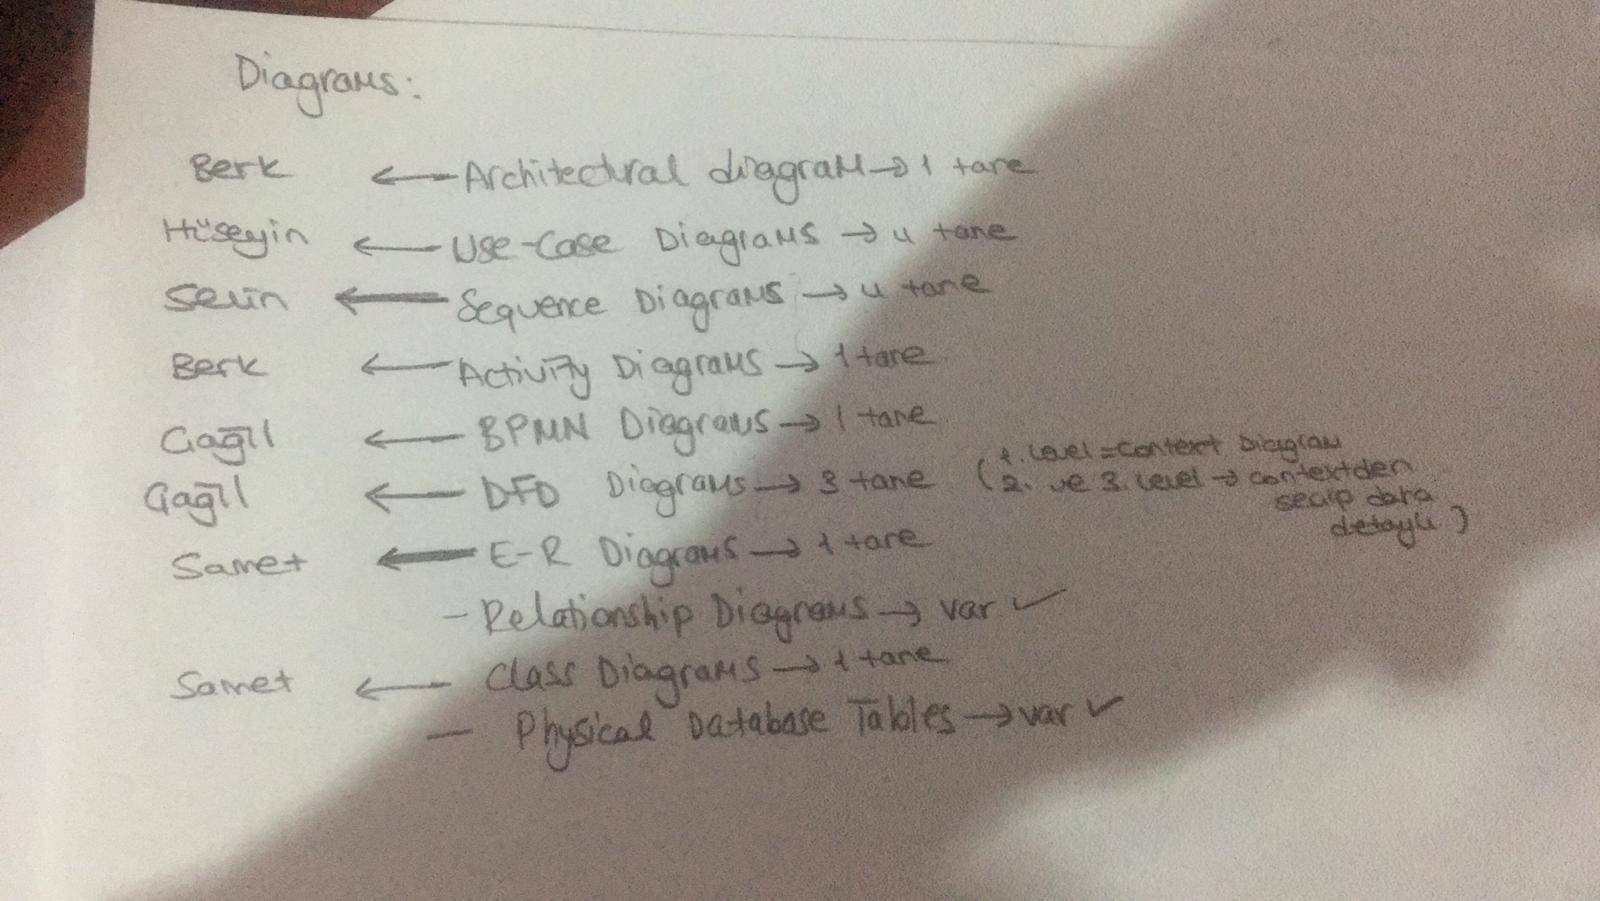 Diagrams:
Berk ← Architectural diagram → 1 tane
Hüseyin ← Use-Case Diagrams → 4 tane
Selin ← Sequence Diagrams → 4 tane
Berk ← Activity Diagrams → 1 tane
Çağıl ← BPMN Diagrams → 1 tane
Çağıl ← DFD Diagrams → 3 tane (1. Level = Context Diagram
2. ve 3. Level → contextden
seçip daha
detaylı)
Samet ← E-R Diagrams → 1 tane
- Relationship Diagrams → var ✓
Samet ← Class Diagrams → 1 tane
- Physical Database Tables → var ✓